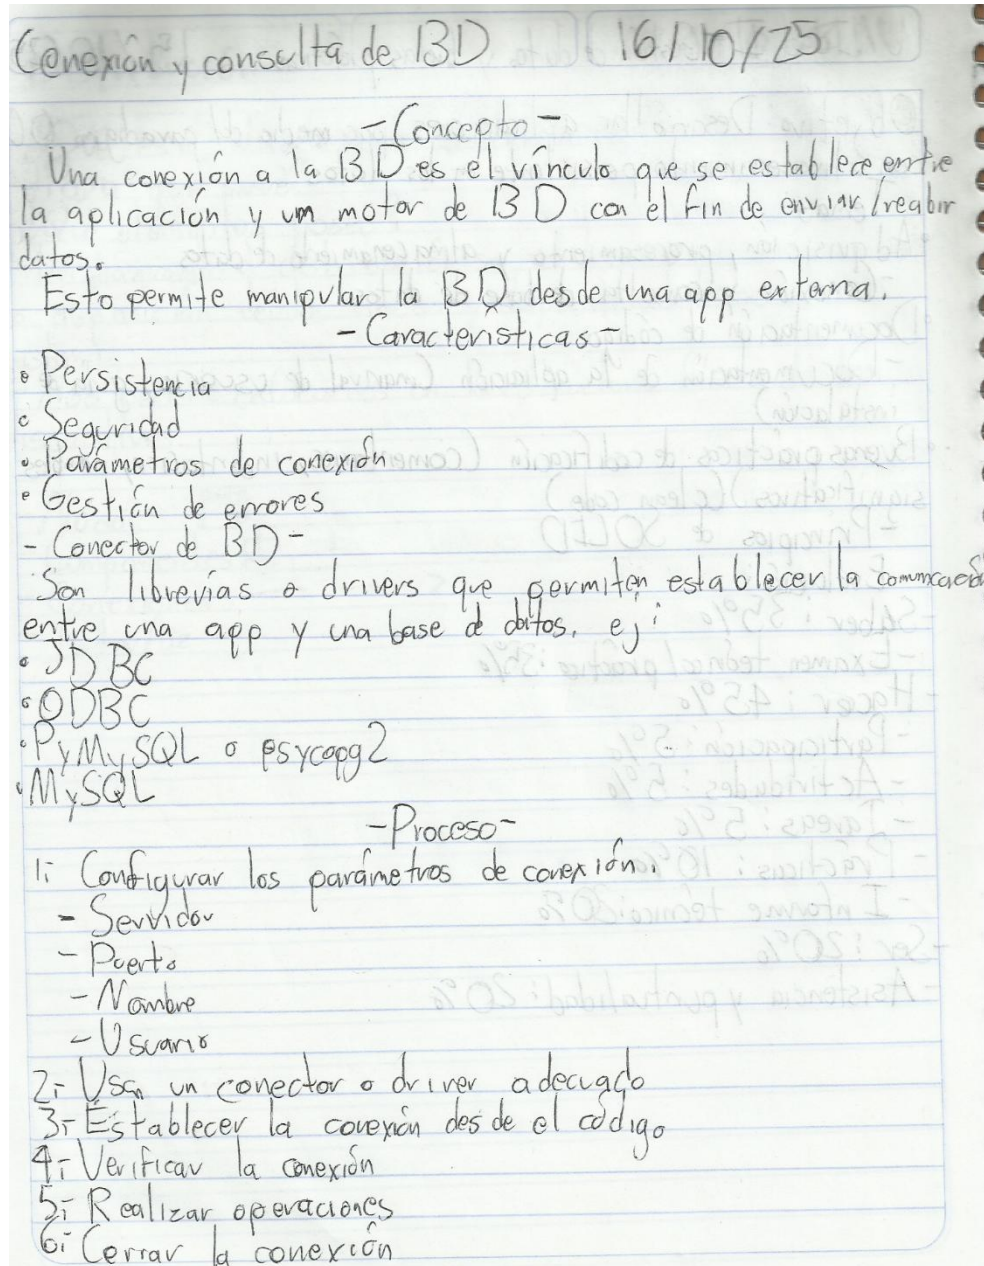 Conexión y consulta de BD 16/10/25
-Concepto-
Una conexión a la BD es el vínculo que se establece entre
la aplicación y um motor de BD con el fin de enviar/reabir
datos.
Esto permite manipular la BD desde una app externa.
-Características-
• Persistencia
• Seguridad
• Parámetros de conexión
• Gestión de errores
- Conector de BD -
Son librerías o drivers que permiten establecer la comunicación
entre una app y una base de datos, ej:
• JDBC
• ODBC
• PyMySQL o psycopg2
• MySQL
-Proceso-
1; Configurar los parámetros de conexión.
- Servidor
- Puerto
- Nombre
- Usuario
2; Usar un conector o driver adecuado
3; Establecer la conexión desde el código
4; Verificar la conexión
5; Realizar operaciones
6; Cerrar la conexión